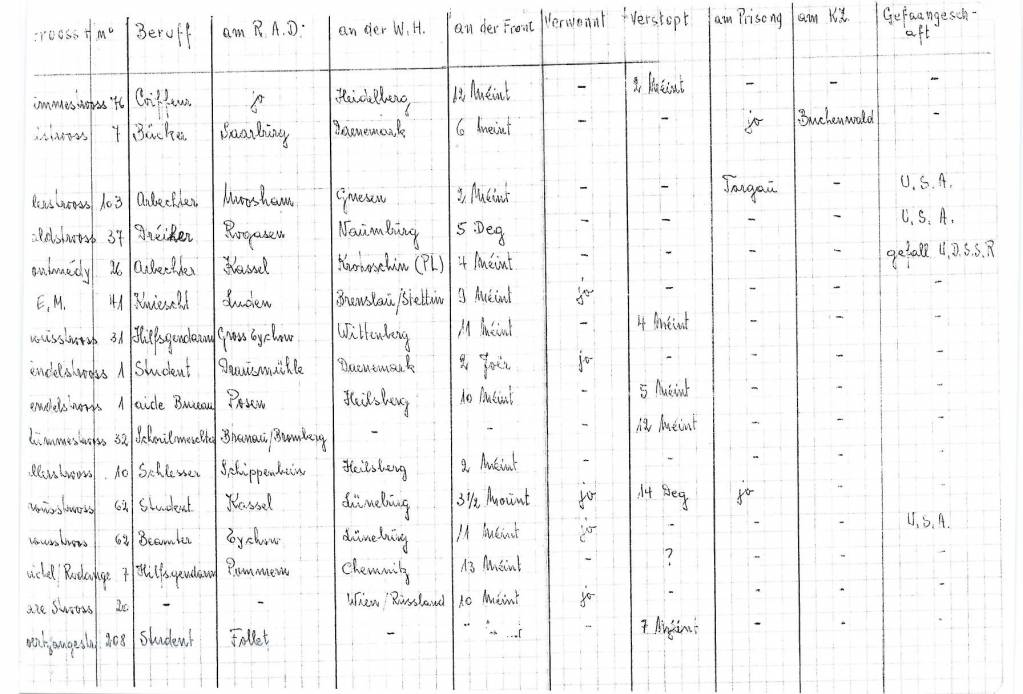 Strooss + Nº Beruff am R.A.D. an der W.H. an der Front Verwonnt Verstopt am Prisong am KZ Gefaangesch-
aft
immestrooss 76 Coiffeur jo Heidelberg 12 Méint - 2 Méint - - -
istrooss 7 Bäcker Saarbürg Daenemark 6 Méint - - jo Buchenwald -
lerstrooss 103 Arbechter Moosham Gnesen 2 Méint - - Torgau - U.S.A.
aldstrooss 37 Dréiher Rogasen Naumbürg 5 Deg - - - - U.S.A.
ontmédy 26 Arbechter Kassel Krotoschin (PL) 4 Méint - - - - gefall U.D.S.S.R
E.M. 41 Kniescht Luden Brenslau/Stettin 9 Méint jo - - - -
31 Hilfsgendarm Gross Tychow Wittenberg 11 Méint - 4 Méint - - -
endelstrooss 1 Student Drausmühle Daenemark 2 Joër jo - - - -
endelstrooss 1 aide Bureau Posen Heilsberg 10 Méint - 5 Méint - - -
lümmestrooss 32 Schoulmeschter Branau/Bromberg - - - 12 Méint - - -
llerstrooss 10 Schlesser Schippenbein Heilsberg 2 Méint - - - - -
62 Student Kassel Lünebürg 3 1/2 Mount jo 14 Deg jo - -
62 Beamter Tychow Lünebürg 11 Méint jo - - - U.S.A.
/Rodange 7 Hilfsgendarm Pommern Chemnitz 13 Méint - ? - - -
are Strooss 20 - - Wien/Russland 10 Méint jo - - - -
208 Student Follet - - 7 Méint - - -